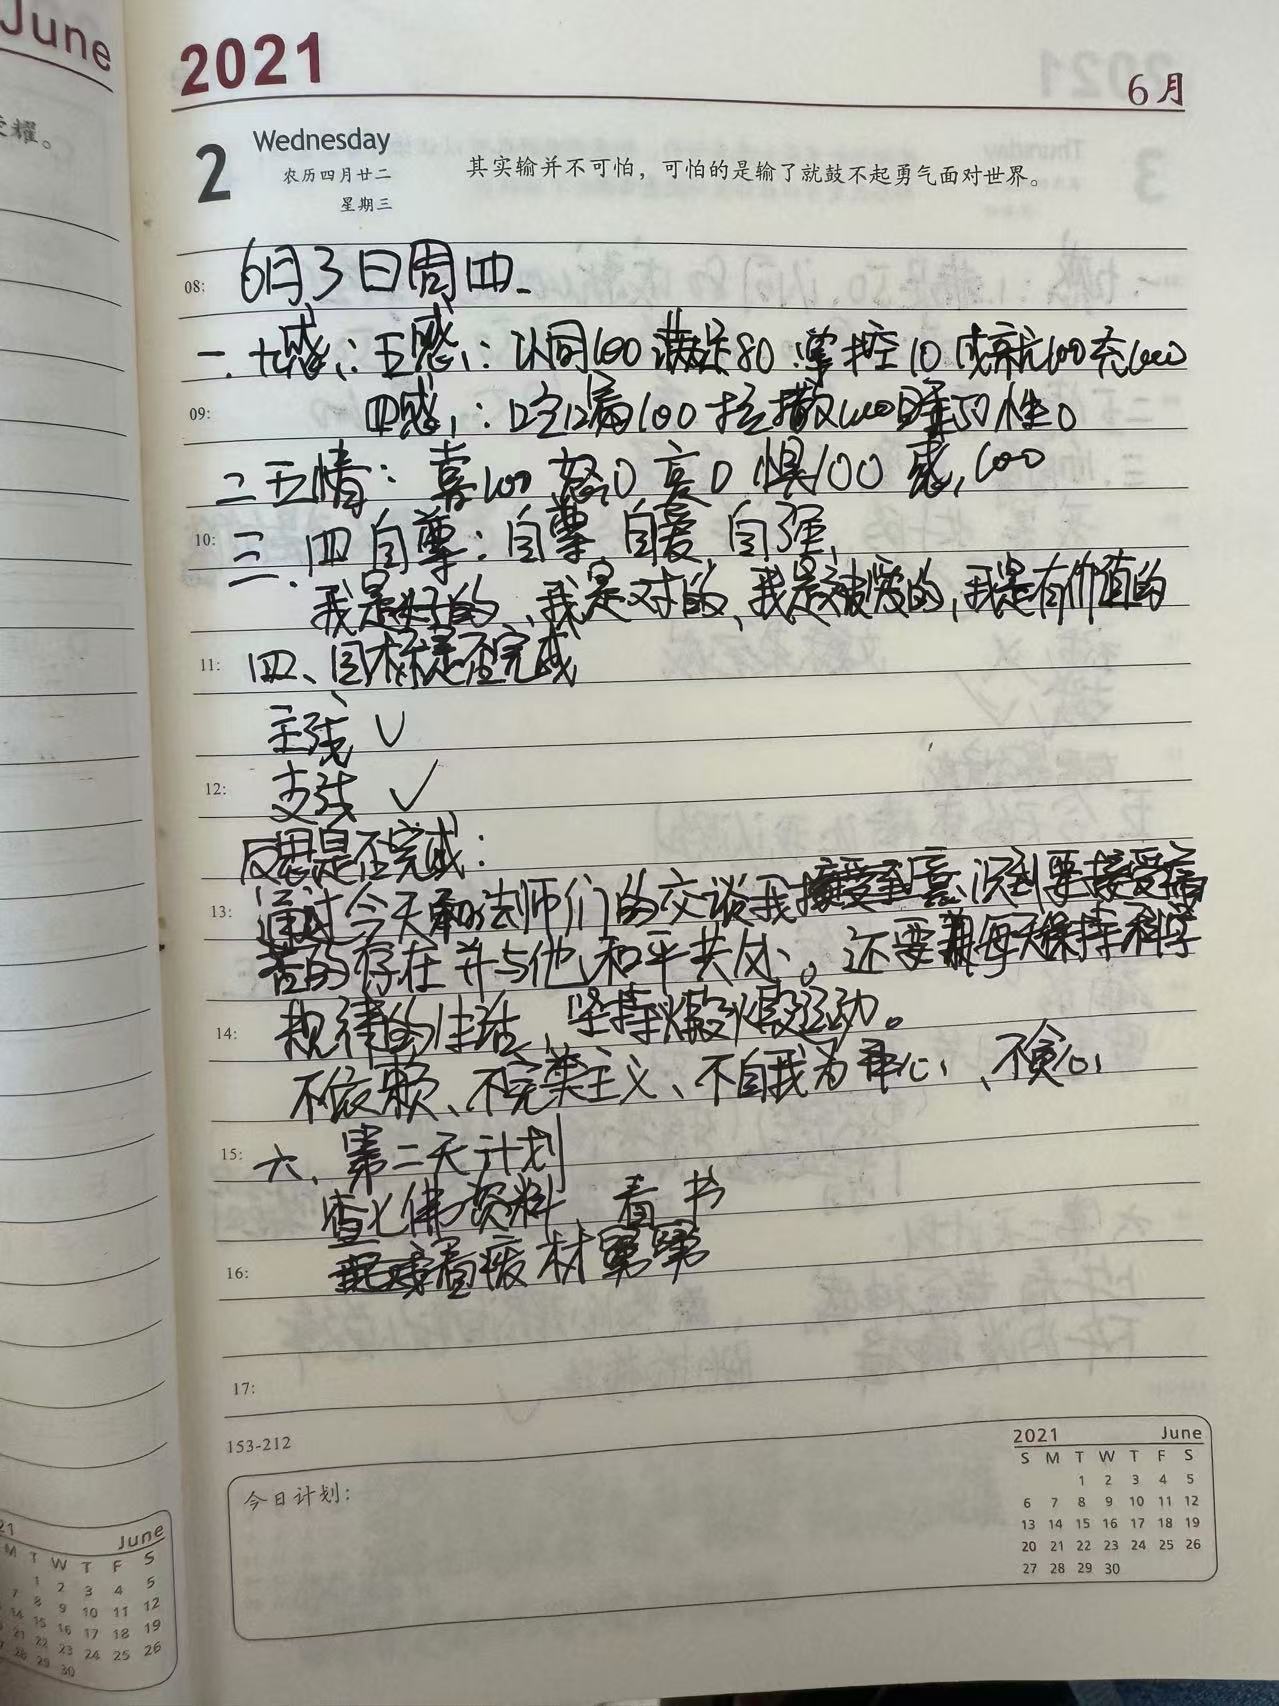 June
耀。
2021
6月
2
Wednesday
农历四月廿二
星期三
其实输并不可怕，可怕的是输了就鼓不起勇气面对世界。
08:
6月3日周四
一. 七感：五感：认同100 满足80 掌控10 成就100 充100
09:
四感：吃喝100 拉撒100 睡50 性0
二 五情：喜100 怒0 哀0 惧100 感100
10:
三、四自尊：自尊 自爱 自强
我是好的、我是对的、我是被爱的、我是有价值的
11:
四、目标是否完成
主线 ✓
12:
支线 ✓
反思是否完成：
13:
通过今天和法师们的交谈我 意识到要接受痛
苦的存在并与他和平共处。还要 每天保持科学
14:
规律的生活、坚持锻炼运动。
不依赖、不完美主义、不自我为中心、不贪心
15:
六、第二天计划
查七佛资料 看书
16:
看 材
17:
153-212
今日计划：
2021 June
S M T W T F S
1 2 3 4 5
6 7 8 9 10 11 12
13 14 15 16 17 18 19
20 21 22 23 24 25 26
27 28 29 30
21 June
M T W T F S
1 2 3 4 5
7 8 9 10 11 12
14 15 16 17 18 19
21 22 23 24 25 26
28 29 30